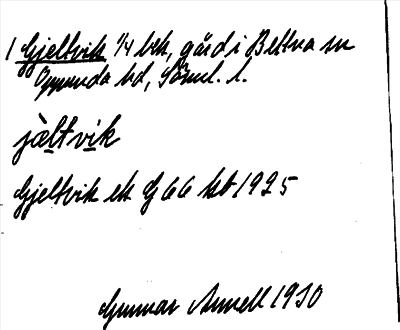 1 Gjeltvik 1/4 bek, gård i Bettna sn
Oppunda hd, Söml. l.
jàltvik
Gjeltvik ek G 66 kb 1925
Gunnar Annell 1930